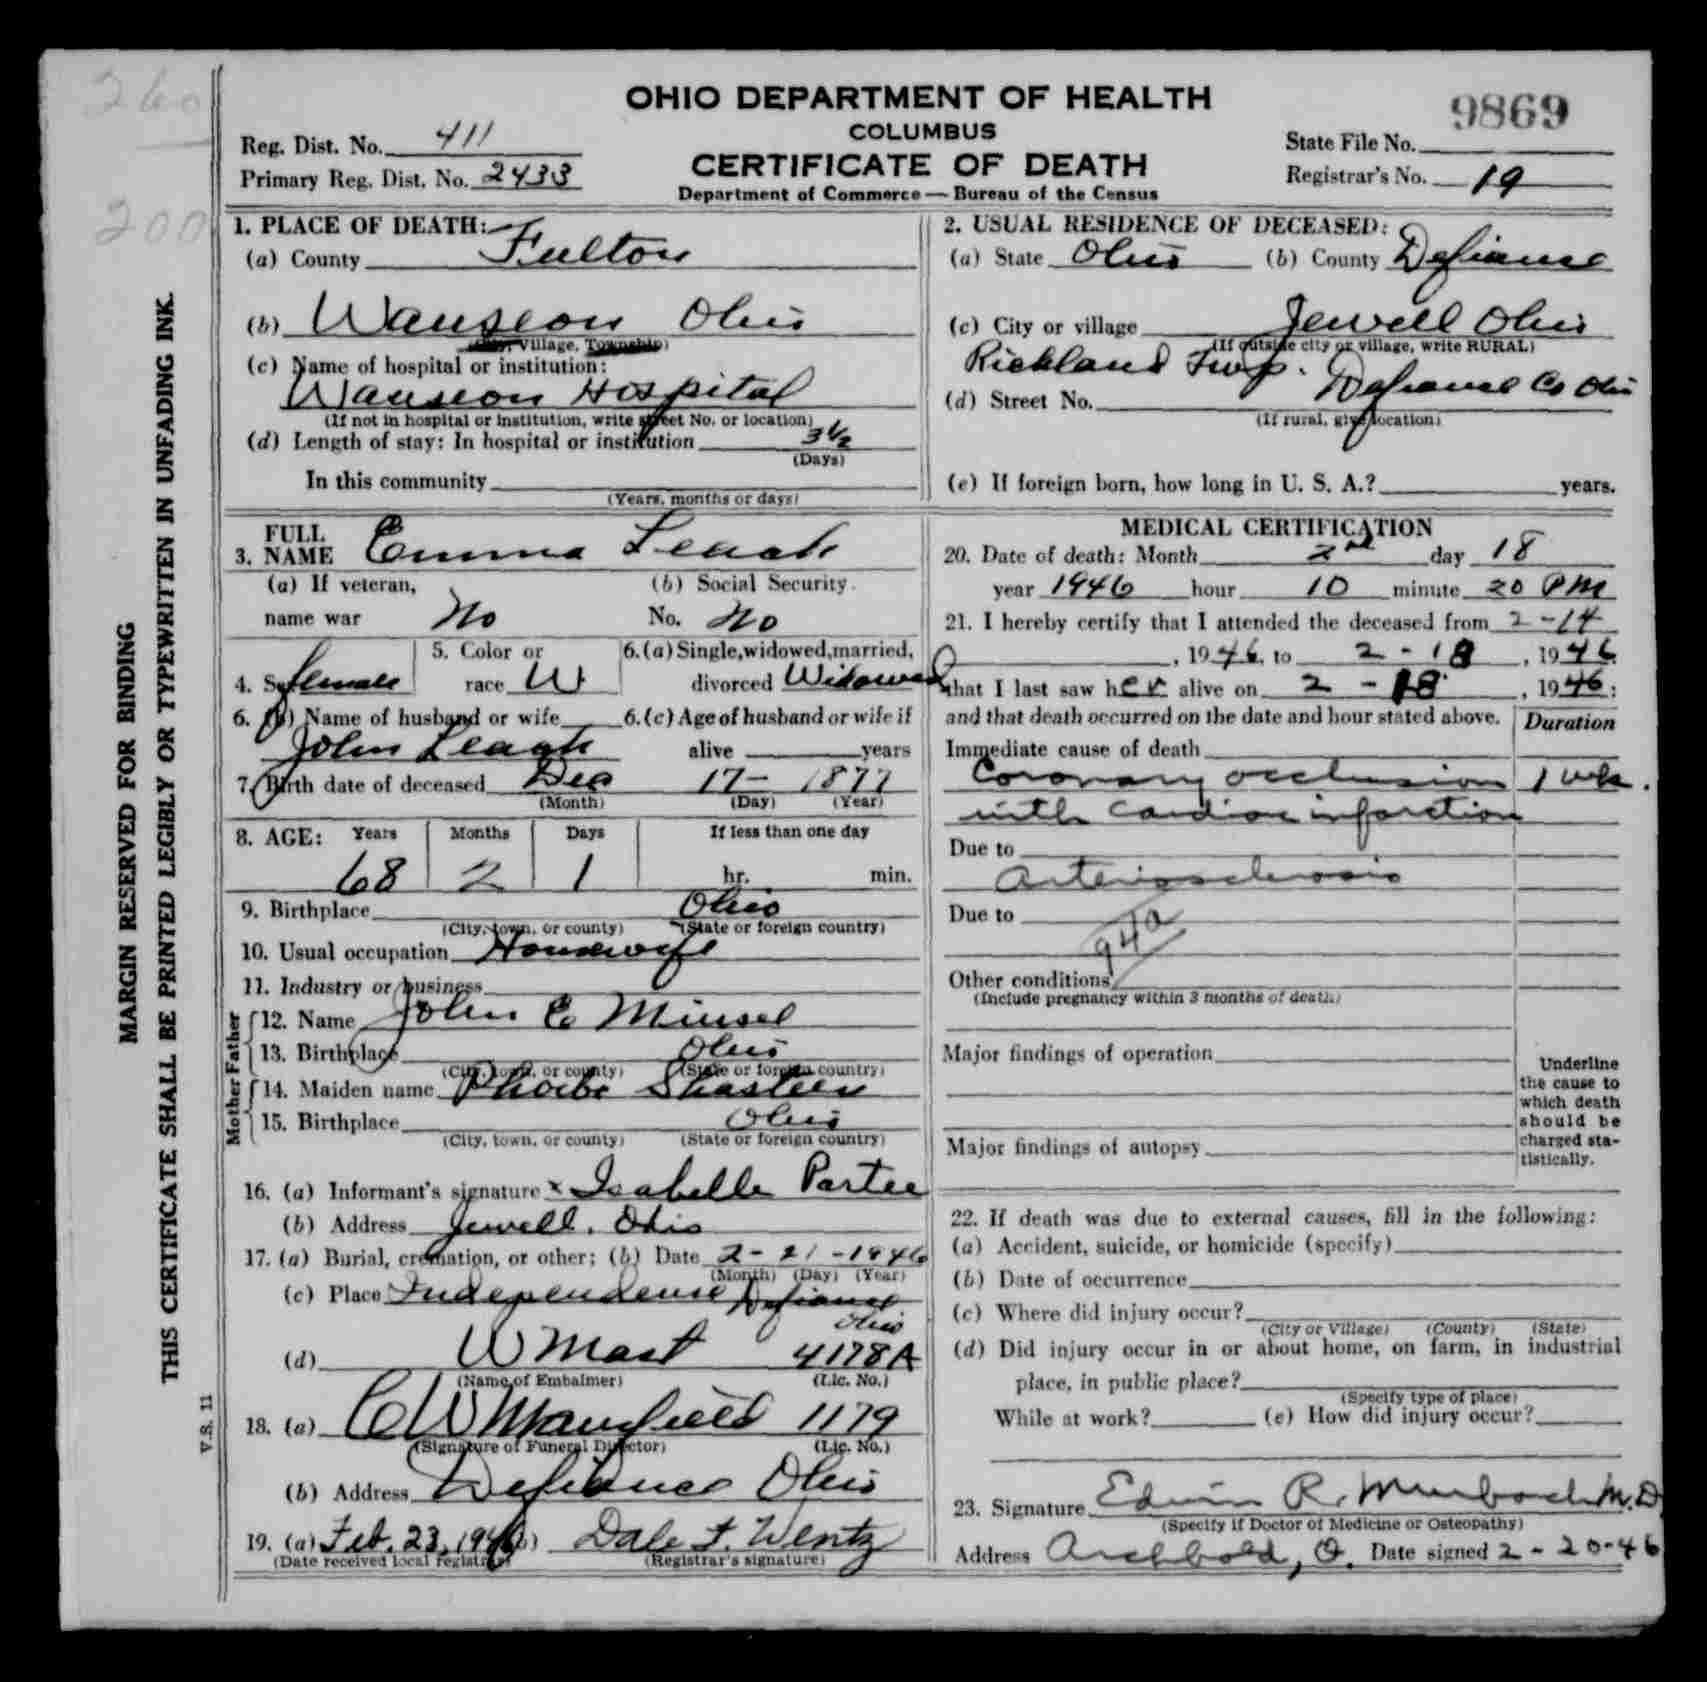 260
200
MARGIN RESERVED FOR BINDING
THIS CERTIFICATE SHALL BE PRINTED LEGIBLY OR TYPEWRITTEN IN UNFADING INK.
V.S. 11
OHIO DEPARTMENT OF HEALTH
COLUMBUS
CERTIFICATE OF DEATH
Department of Commerce — Bureau of the Census
Reg. Dist. No. 411
Primary Reg. Dist. No. 2433
9869
State File No.
Registrar's No. 19
1. PLACE OF DEATH:
(a) County Fulton
(b) Wauseon Ohio
Village, Township)
(c) Name of hospital or institution:
Wauseon Hospital
(If not in hospital or institution, write street No. or location)
(d) Length of stay: In hospital or institution 3 1/2
(Days)
In this community
(Years, months or days)
2. USUAL RESIDENCE OF DECEASED:
(a) State Ohio (b) County Defiance
(c) City or village Jewell Ohio
(If outside city or village, write RURAL)
Richland Twp. Defiance Co Ohio
(d) Street No.
(If rural, give location)
(e) If foreign born, how long in U. S. A.? years.
3. FULL NAME Emma Leach
(a) If veteran, (b) Social Security
name war No No. No
4. Sex female 5. Color or race W 6.(a) Single, widowed, married, divorced Widowed
6. (b) Name of husband or wife 6.(c) Age of husband or wife if
John Leach alive years
7. Birth date of deceased Dec 17 - 1877
(Month) (Day) (Year)
8. AGE: Years Months Days If less than one day
68 2 1 hr. min.
9. Birthplace Ohio
(City, town, or county) (State or foreign country)
10. Usual occupation Housewife
11. Industry or business
Father
12. Name John C Minsel
13. Birthplace Ohio
(City, town, or county) (State or foreign country)
Mother
14. Maiden name Phoebe Shasteen
15. Birthplace Ohio
(City, town, or county) (State or foreign country)
16. (a) Informant's signature x Isabelle Partee
(b) Address Jewell, Ohio
17. (a) Burial, cremation, or other; (b) Date 2 - 21 - 1946
(Month) (Day) (Year)
(c) Place Independence Defiance
Ohio
(d) W Mast 4178A
(Name of Embalmer) (Lic. No.)
18. (a) C W Mansfield 1179
(Signature of Funeral Director) (Lic. No.)
(b) Address Defiance Ohio
19. (a) Feb. 23, 1946 (b) Dale F. Wentz
(Date received local registrar) (Registrar's signature)
MEDICAL CERTIFICATION
20. Date of death: Month 2nd day 18
year 1946 hour 10 minute 20 PM
21. I hereby certify that I attended the deceased from 2 - 14
, 1946, to 2 - 18, 1946
that I last saw her alive on 2 - 18, 1946;
and that death occurred on the date and hour stated above. Duration
Immediate cause of death
Coronary occlusion 1 wk.
with cardiac infarction
Due to
Arteriosclerosis
Due to
94a
Other conditions
(Include pregnancy within 3 months of death)
Major findings of operation
Major findings of autopsy
Underline
the cause to
which death
should be
charged sta-
tistically.
22. If death was due to external causes, fill in the following:
(a) Accident, suicide, or homicide (specify)
(b) Date of occurrence
(c) Where did injury occur?
(City or Village) (County) (State)
(d) Did injury occur in or about home, on farm, in industrial
place, in public place?
(Specify type of place)
While at work? (e) How did injury occur?
23. Signature Edwin R. Murbach M.D.
(Specify if Doctor of Medicine or Osteopathy)
Address Archbold, O. Date signed 2 - 20 - 46